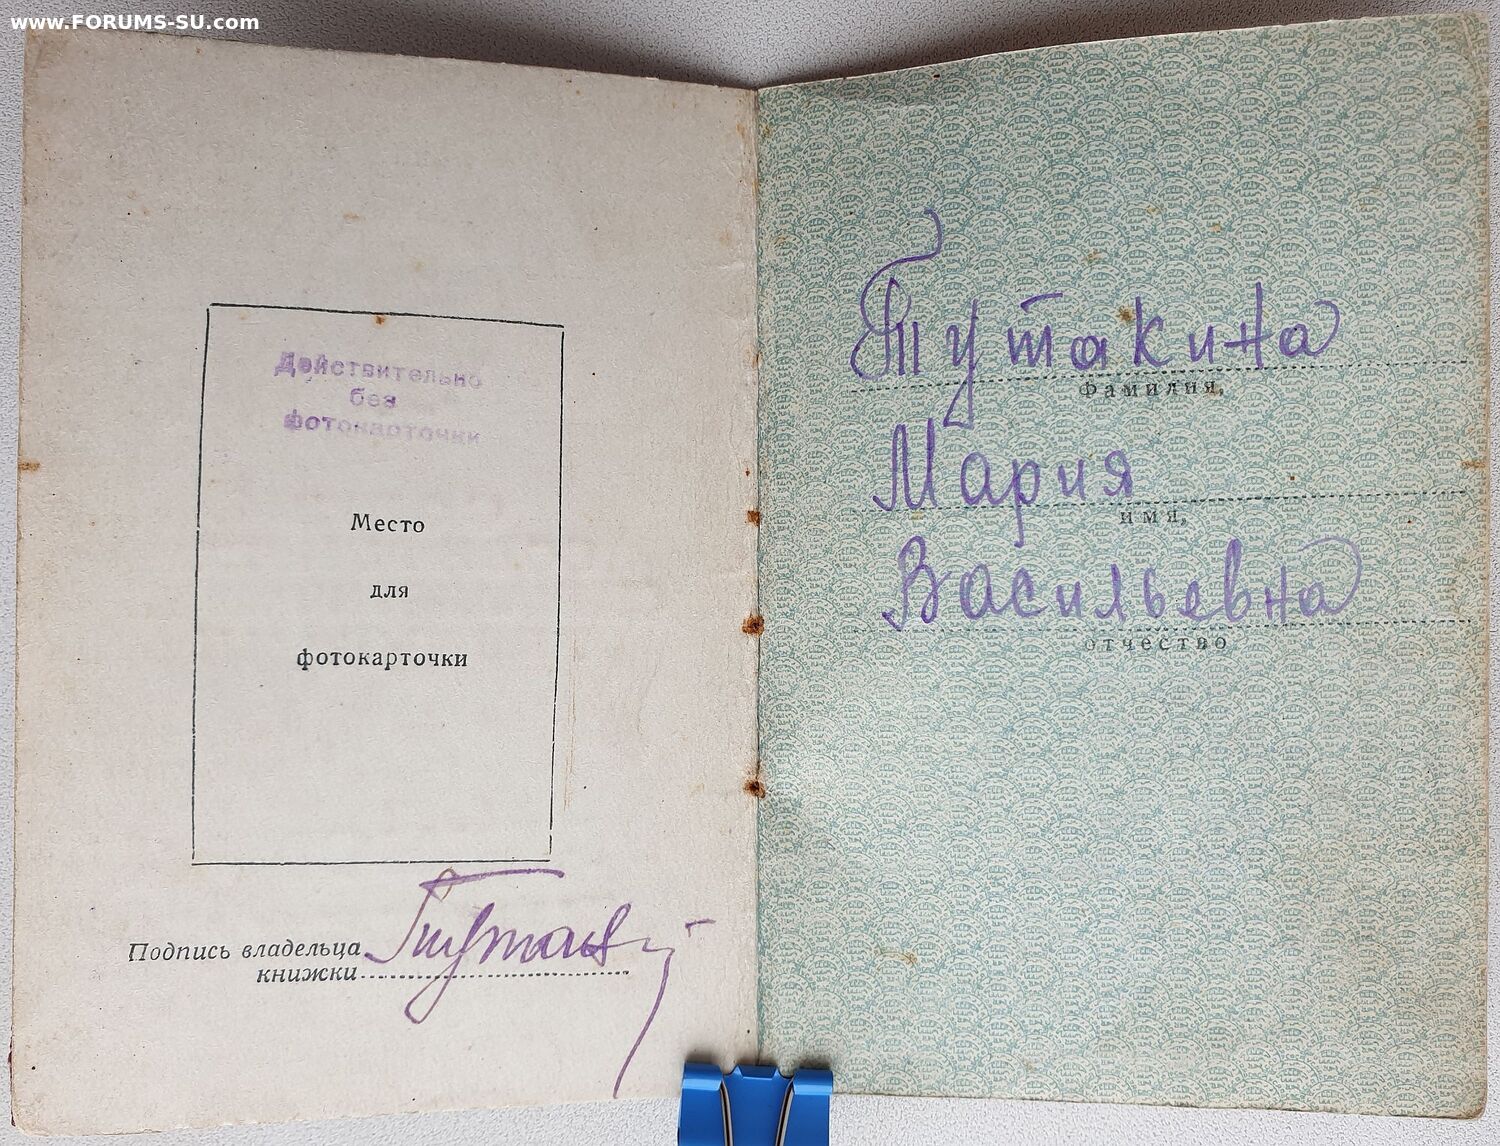 www.FORUMS-SU.com
Действительно
без
фотокарточки
Место
для
фотокарточки
Подпись владельца
книжки
Тутакина
Фамилия,
Мария
имя,
Васильевна
отчество